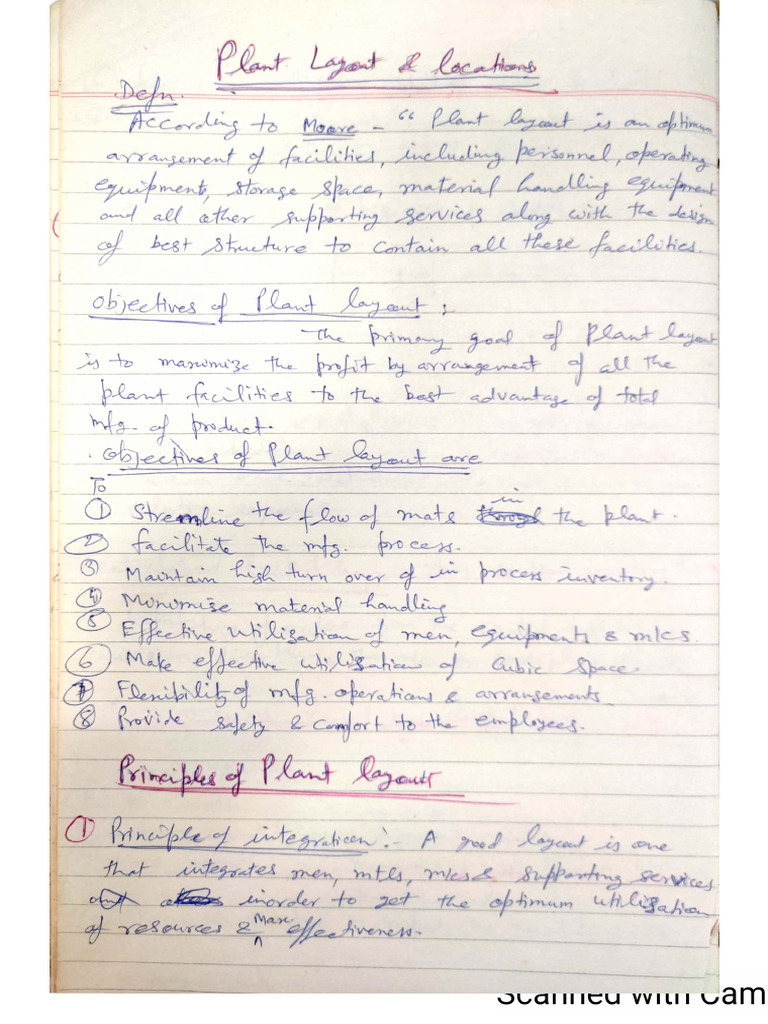 Plant Layout & locations
Defn.
According to Moore - "Plant layout is an optimum
arrangement of facilities, including personnel, operating
equipments, storage space, material handling equipment
and all other supporting services along with the design
of best structure to contain all these facilities.
Objectives of Plant layout :
The primary goal of Plant layout
is to maximize the profit by arrangement of all the
plant facilities to the best advantage of total
mfg. of product.
Objectives of Plant layout are
To
① Streamline the flow of mats in the plant.
② facilitate the mfg. process.
③ Maintain high turn over of in process inventory.
④ Minimise material handling
⑤ Effective utilisation of men, equipments & m/cs.
⑥ Make effective utilisation of Cubic Space.
⑦ Flexibility of mfg. operations & arrangements
⑧ Provide safety & comfort to the employees.
Principles of Plant layout
① Principle of integration :- A good layout is one
that integrates men, mtls, m/cs & supporting services
inorder to get the optimum utilisation
of resources & Max effectiveness.
Scanned with Cam